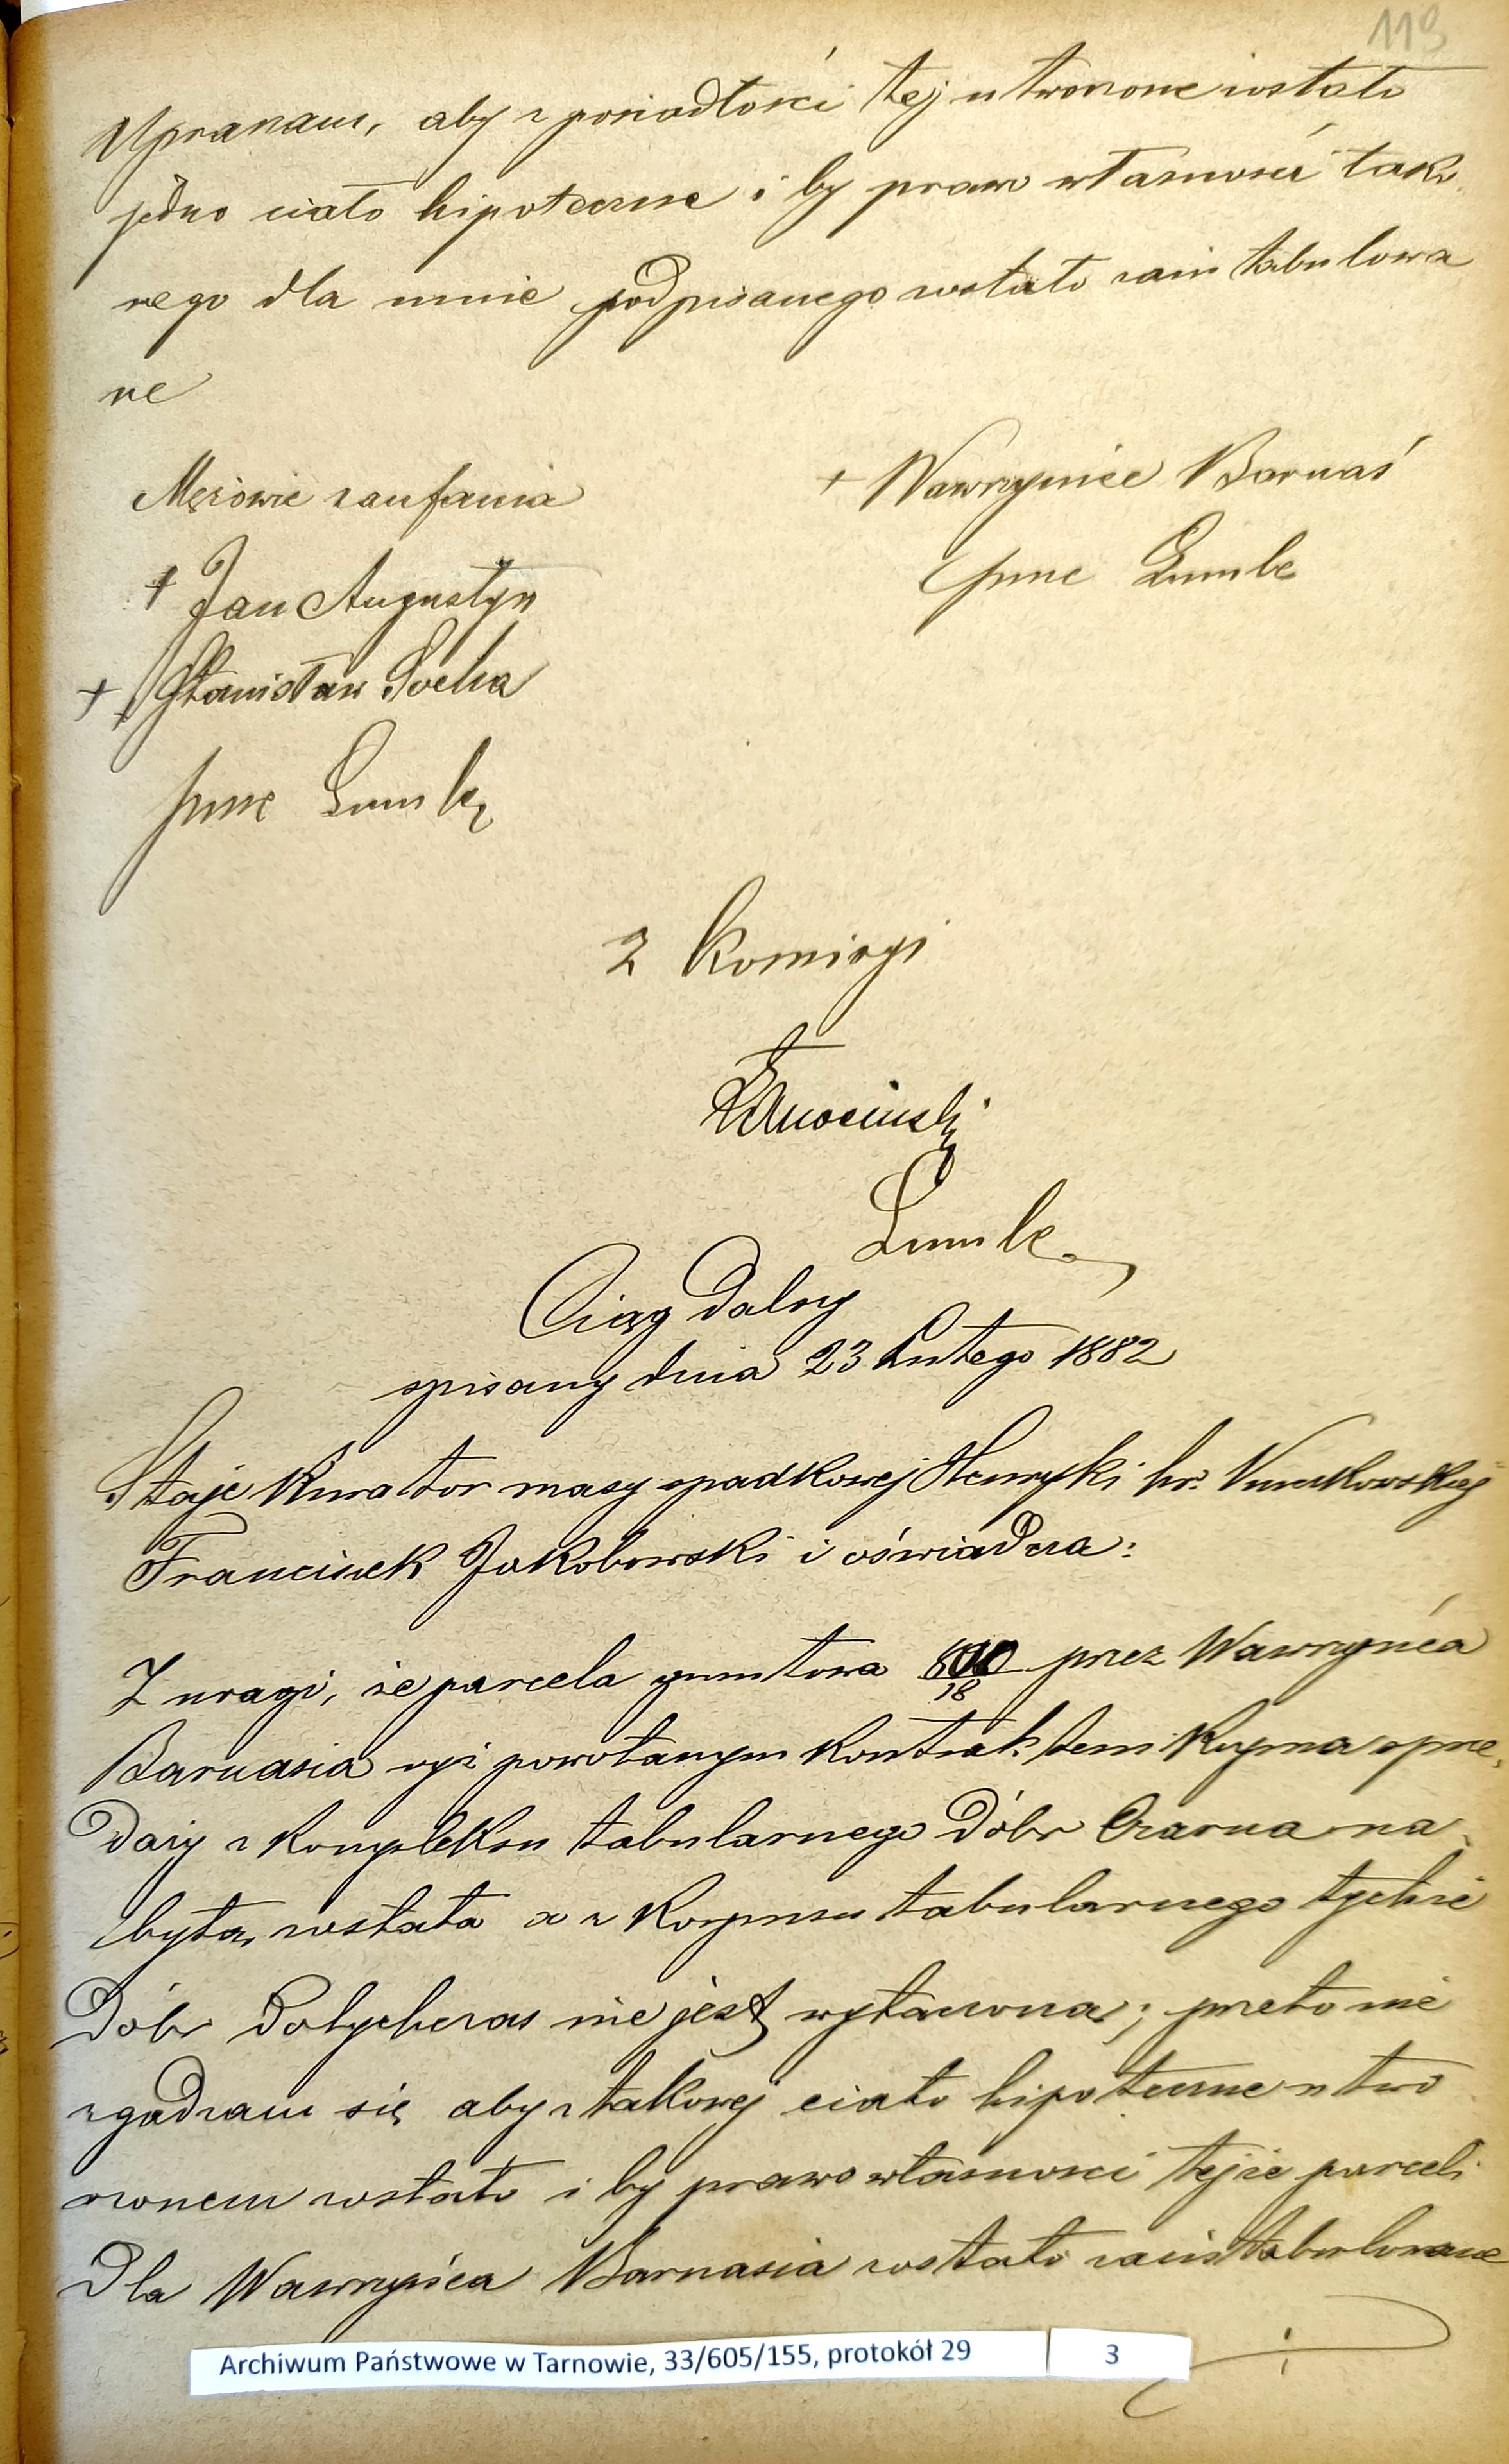 119
Upraszam, aby z posiadłości tej utworzone zostało
jedno ciało hipoteczne i by prawo własności tako
wego dla mnie podpisanego zostało zaintabulowa
ne
Mężowie zaufania
+ Wawrzyniec Barnaś
+ Jan Augustyn
prze Zumbe
+ Stanisław Socha
prze Zumbe
Z Komisyi
Zumbe
Ciąg dalszy
spisany dnia 23 Lutego 1882
Staje Kurator masy spadkowej Henryki hr.
Franciszek Jakobowski i oświadcza:
Z uwagi, że parcela gruntowa przez Wawrzyńca
Barnasia wyż powołanym kontraktem kupna sprze,
daży z kompleksu tabularnego Dóbr Czarna na
bytą, została a z Korpusu tabularnego tychże
Dóbr Dotychczas nie jest wyłączoną; przeto nie
zgadzam się aby z takowej ciało hipoteczne utwo
rzonem zostało i by prawo własności tejże parceli
Dla Wawrzyńca Barnasia zostało zaintabulowane
Archiwum Państwowe w Tarnowie, 33/605/155, protokół 29 3